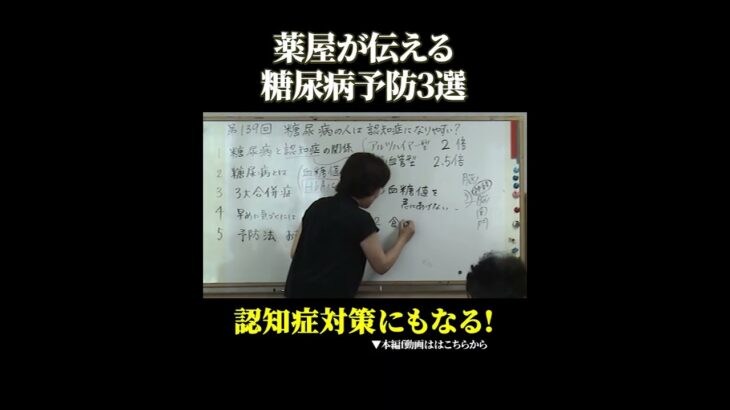 薬屋が伝える
糖尿病予防3選
第139回 糖尿病の人は認知症になりやすい?
1 糖尿病と認知症の関係 (アルツハイマー型 2倍
血管型 2.5倍
2 糖尿病とは (血糖値
3 3大合併症 血糖値を
急にあげない
4 早めに気づくには
5 予防法
食
認知症対策にもなる!
▼本編f動画ははこちらから